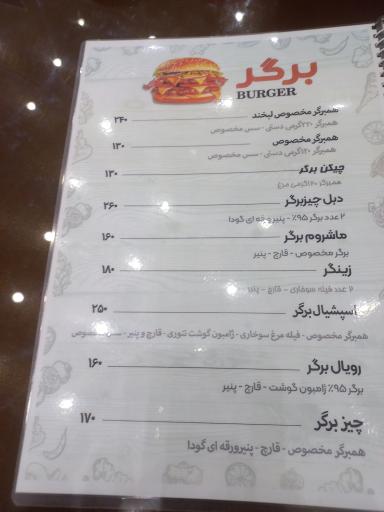 برگر
BURGER
همبرگر مخصوص لبخند ۲۴۰
همبرگر ۲۲۰گرمی دستی - سس مخصوص
همبرگر مخصوص ۱۳۰
همبرگر ۱۲۰گرمی دستی - سس مخصوص
چیکن برگر ۱۳۰
همبرگر ۱۲۰گرمی مرغ
دبل چیزبرگر ۲۶۰
۲ عدد برگر ۹۵٪ - پنیر ورقه ای گودا
ماشروم برگر ۱۶۰
برگر مخصوص - قارچ - پنیر
زینگر ۱۸۰
۲ عدد فیله سوخاری - قارچ - پنیر
اسپشیال برگر ۲۵۰
همبرگر مخصوص - فیله مرغ سوخاری - ژامبون گوشت تنوری - قارچ و پنیر - سس مخصوص
رویال برگر ۱۶۰
برگر ۹۵٪ ژامبون گوشت - قارچ - پنیر
چیز برگر ۱۷۰
همبرگر مخصوص - قارچ - پنیرورقه ای گودا